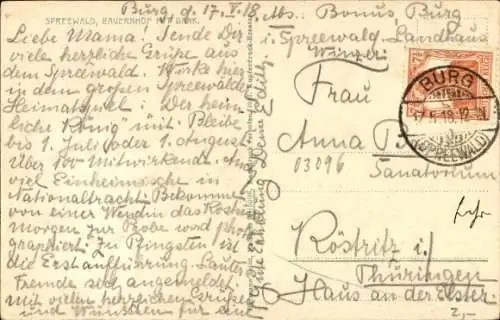 SPREEWALD, BAUERNHOF MIT KAHN.
Burg d. 17. V. 18. Abs. Bonus, Burg
i. Spreewald. Landhaus
Liebe Mama! Sende Dir
viele herzliche Grüße aus
dem Spreewald. Wirke hier
in dem großen Spreewälder
Heimatspiel: „Der heim-
liche König" mit. Bleibe
bis 1. Juli oder 1. August.
Über 100 Mitwirkende.
viel Einheimische in
Nationaltracht. Bekomme
von einer Wendin das Kostüm
morgen zur Probe wird pho-
graphiert. Zu Pfingsten ist
die Erstaufführung. Lauter
Fremde angemeldet.
Mit vielen herzlichen Grüßen
und Wünschen für eine
gute Erholung Deine
Frau
Anna
03096
Sanatorium
Köstritz i/
Thüringen
Haus an der Elster.
BURG
17.5.18.
(SPREEWALD)
2,-